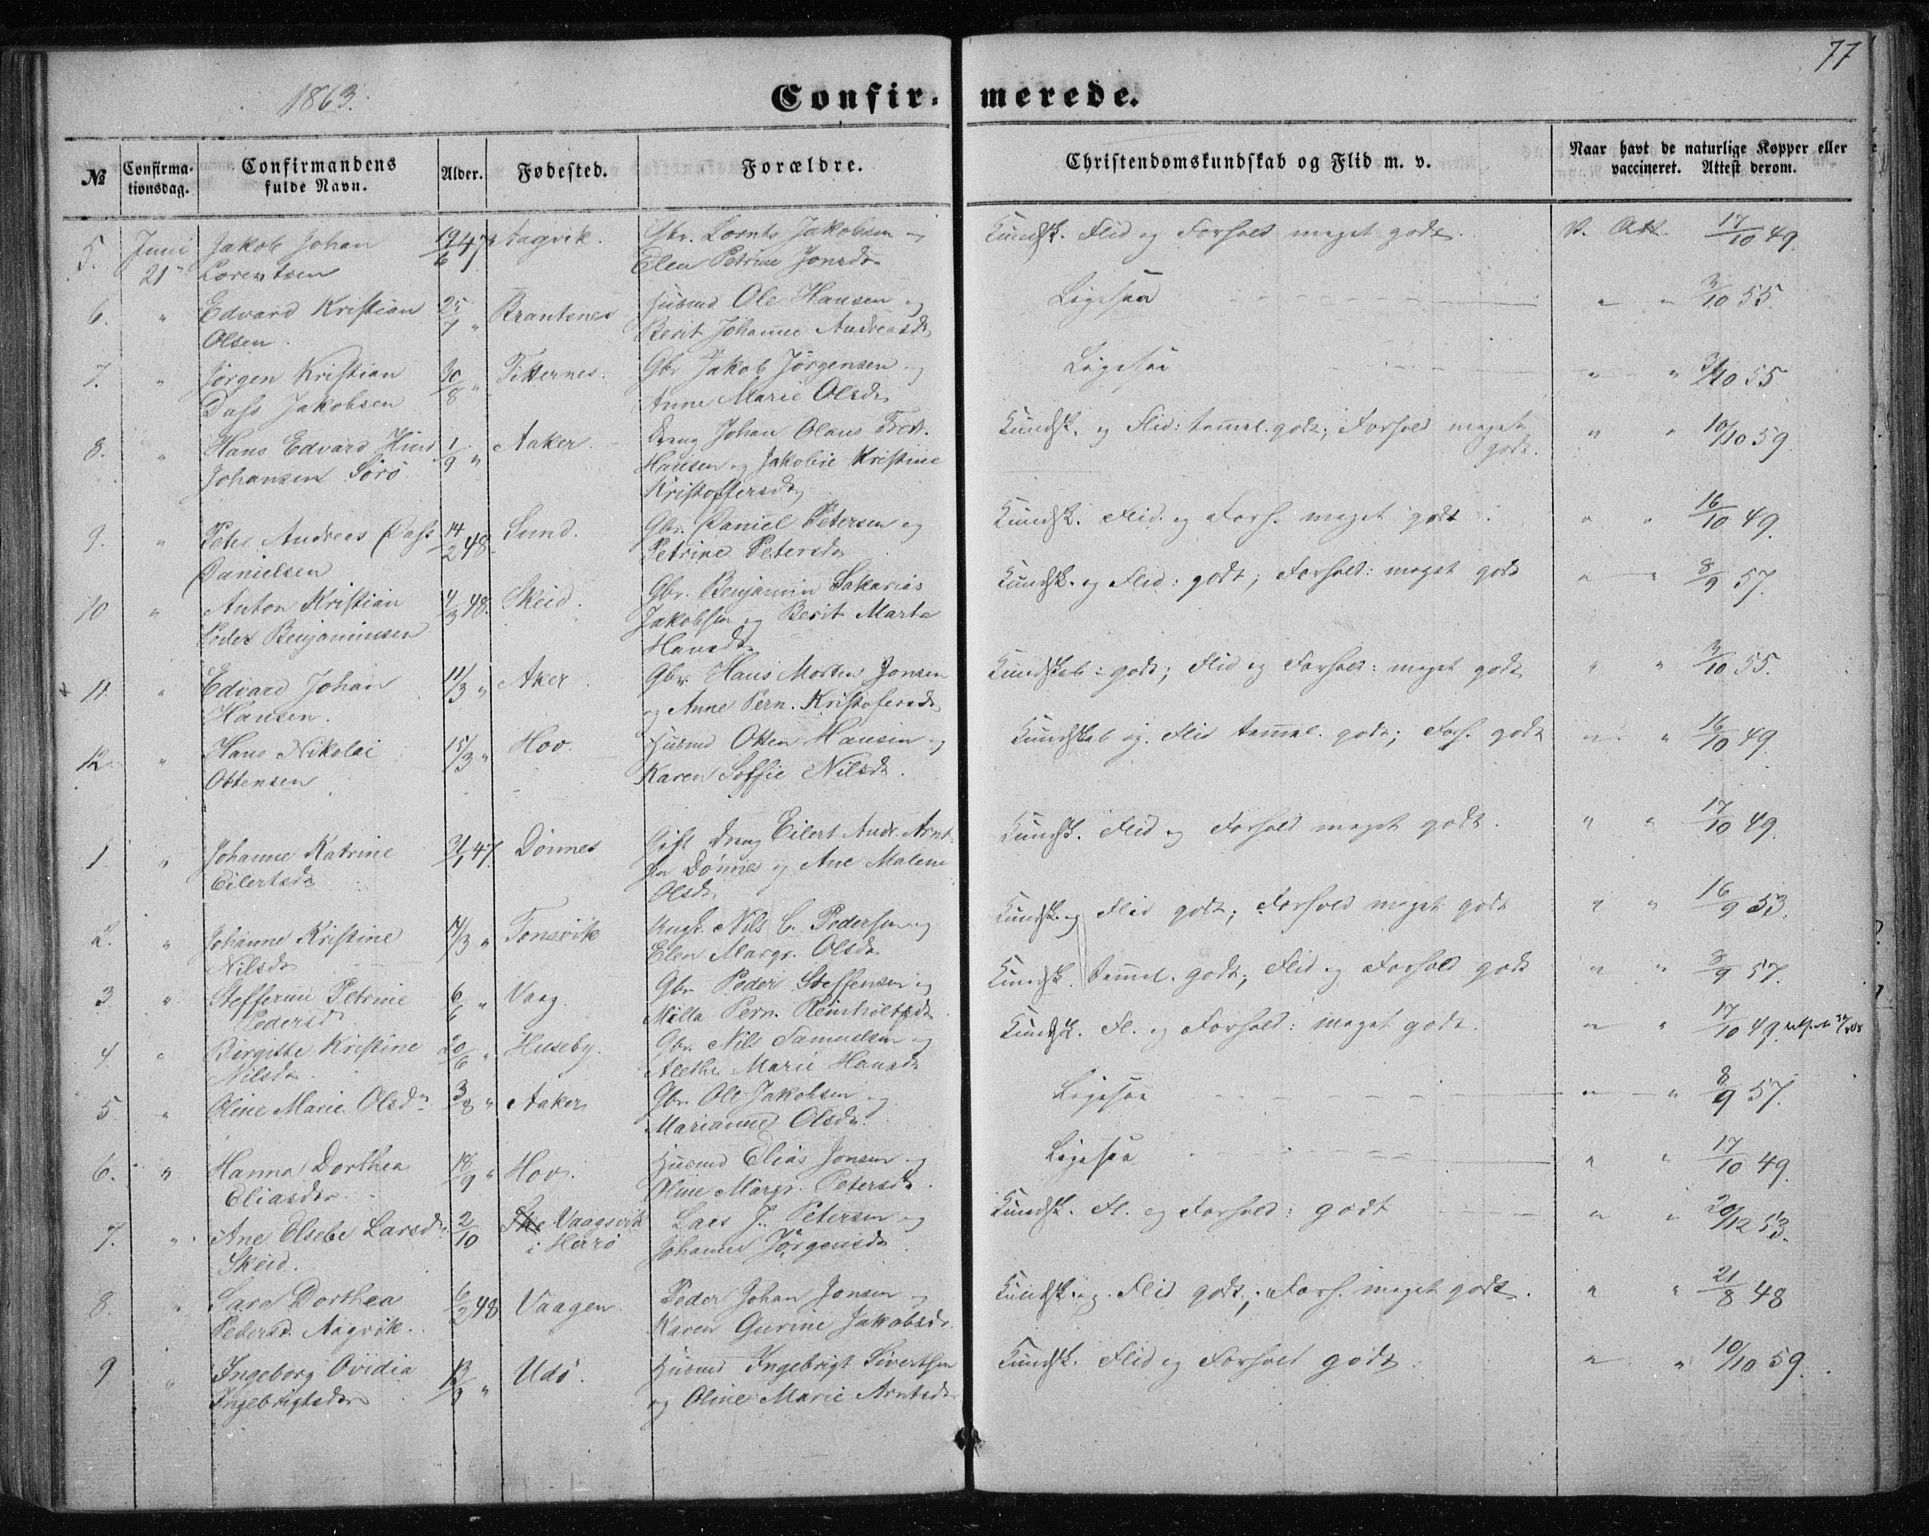 77
1863.
Confir- merede.
№ Confirma-tionsdag. Confirmandens fulde Navn. Alder. Fødested. Forældre. Christendomskundskab og Flid m. v. Naar havt de naturlige Kopper eller vaccineret. Attest derom.
5. Juni Jakob Johan 19/6 47 Aagvik. Gbr. Lornts Jakobsen og Kundsk. Flid og Forhold meget godt. V. Att. 17/10 49.
21 Lorentsen Elen Petrine Jonsdr
6. " Edvard Kristian 25/7 " Brantsnes Husmd Ole Hansen og Ligesaa " " 3/10 55.
Olsen. Berit Johanne Andreasdr
7. " Jørgen Kristian 30/8 " Titternes. Gbr Jakob Jørgensen og Ligesaa " " 3/10 55
Dass Jakobsen Anne Marie Olsdr
8. " Hans Edvard Hind 1/9 " Aaker. Dreng Johan Olaus Fredr. Kundsk. og Flid: tamel. godt; Forhold meget " " 10/10 59.
Johansen Sörö. Hansen og Jakobie Kristine godt.
Kristoffersdr
9. " Peter Andreas Dass 14/2 48. Sund. Gbr. Daniel Petersen og Kundsk. Flid. og Forh. meget godt. " " 16/10 49.
Danielsen Petrine Petersdr
10 " Anton Kristian 4/3 48. Skeid. Gbr. Benjamin Sakarias Kundsk. og Flid: godt; Forhold: meget godt " " 8/9 57.
Peder Benjaminsen Jakobsen og Berit Marta
Hansdr
11. " Edvard Johan 11/3 " Aker. Gbr. Hans Morten Jonsen Kundskab: godt; Flid og Forhold: meget godt " " 3/10 55.
Hansen. og Anne Pern. Kristofersdr
12. " Hans Nikolai 15/3 " Hov. Husmd Otten Hansen og Kundskab og Flid tamel. godt; Forh. godt " " 16/10 49.
Ottensen Karen Soffie Nilsdr.
1. " Johanne Katrine 21/1 47. Dönnes Gift Dreng Eilert Andr. Arnt- Kundsk. Flid og Forhold meget godt. " " 17/10 49.
Eilertsdr sen Dönnes og Ane Malene
Olsdr
2. " Johanne Kristine 14/3 " Tonsvik Nils C. Pedersen og Kundsk. og Flid godt; Forhold meget godt " " 16/9 53.
Nilsdr Elen Margr. Olsdr
3 " Stefferine Petrine 6/6 " Vaag. Gbr. Peder Steffensen og Kundsk. tamel. godt; Flid og Forhold godt " " 8/9 57.
Pedersdr Milla Pern. Reinholtsdr
4. " Birgitte Kristine 20/6 " Huseby. Gbr. Nils Samuelsen og Kundsk. Fl. og Forhold: meget godt. " " 17/10 49.
Nilsdr Alethe Marie Hansdr
5. " Oline Marie Olsdr 3/8 " Aaker Gbr. Ole Jakobsen og Ligesaa " " 8/9 57.
Marianne Olsdr.
6. " Hanna Dorthea 18/9 " Hov. Husmd Elias Jonsen og Ligesaa " " 17/10 49.
Eliasdr. Oline Margr. Petersdr
7. " Ane Elsebe Larsdr 2/10 Vaagsvik Lars J. Petersen og Kundsk. Fl. og Forhold: godt " " 20/12 53.
Skeid. i Herrö Johanne Jörgensdr.
8. " Sara Dorthea 6/2 48 Vaagen. Peder Johan Jonsen og Kundsk. og Flid godt; Forh. meget godt. " " 21/8 48
Pedersd. Aagvik. Karen Gurine Jakobsdr.
9 " Ingeborg Ovidia 13/3 " Udö. Husmd Ingebrigt Sivertsen Kundsk. Flid og Forhold godt. " " 10/10 59.
Ingebrigtsdr og Oline Marie Arntsdr